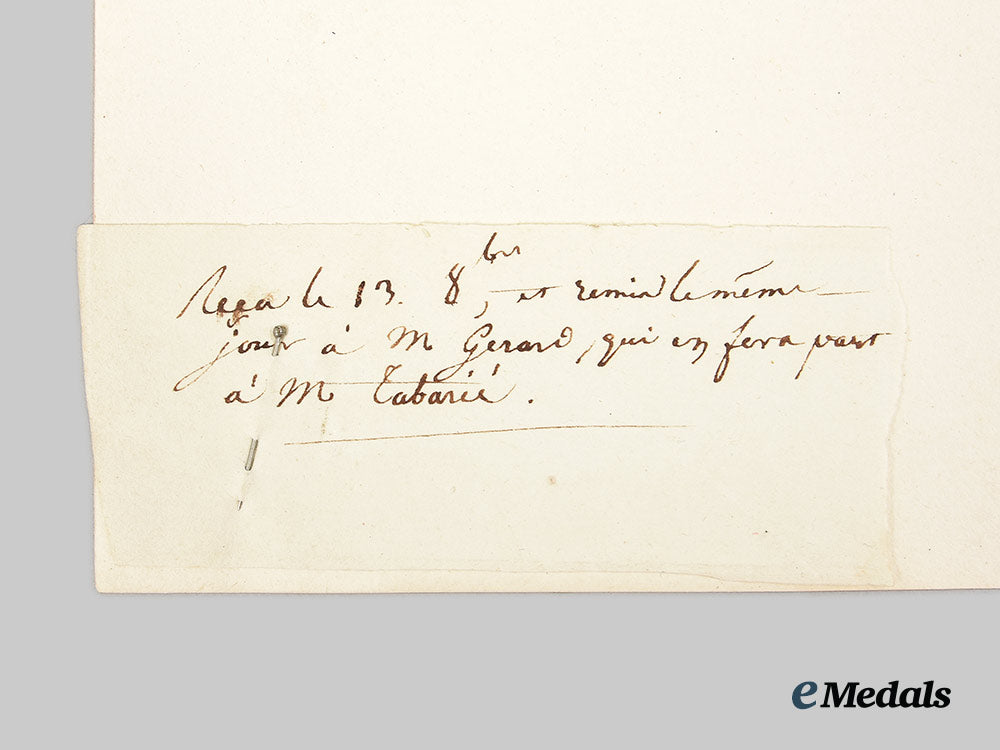 Reçu le 13. 8bre, et remis le même
jour à M Gerard, qui en fera part
à M Tabarié.
eMedals